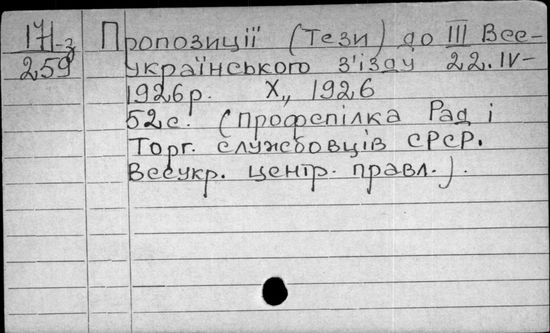 171-з Пропозиції (Тези) до III Все-
259 українського з'їзду 22.IV-
1926р. Х., 1926
52с. (Профспілка Рад і
Торг. службовців СРСР.
Всеукр. центр. правл.).